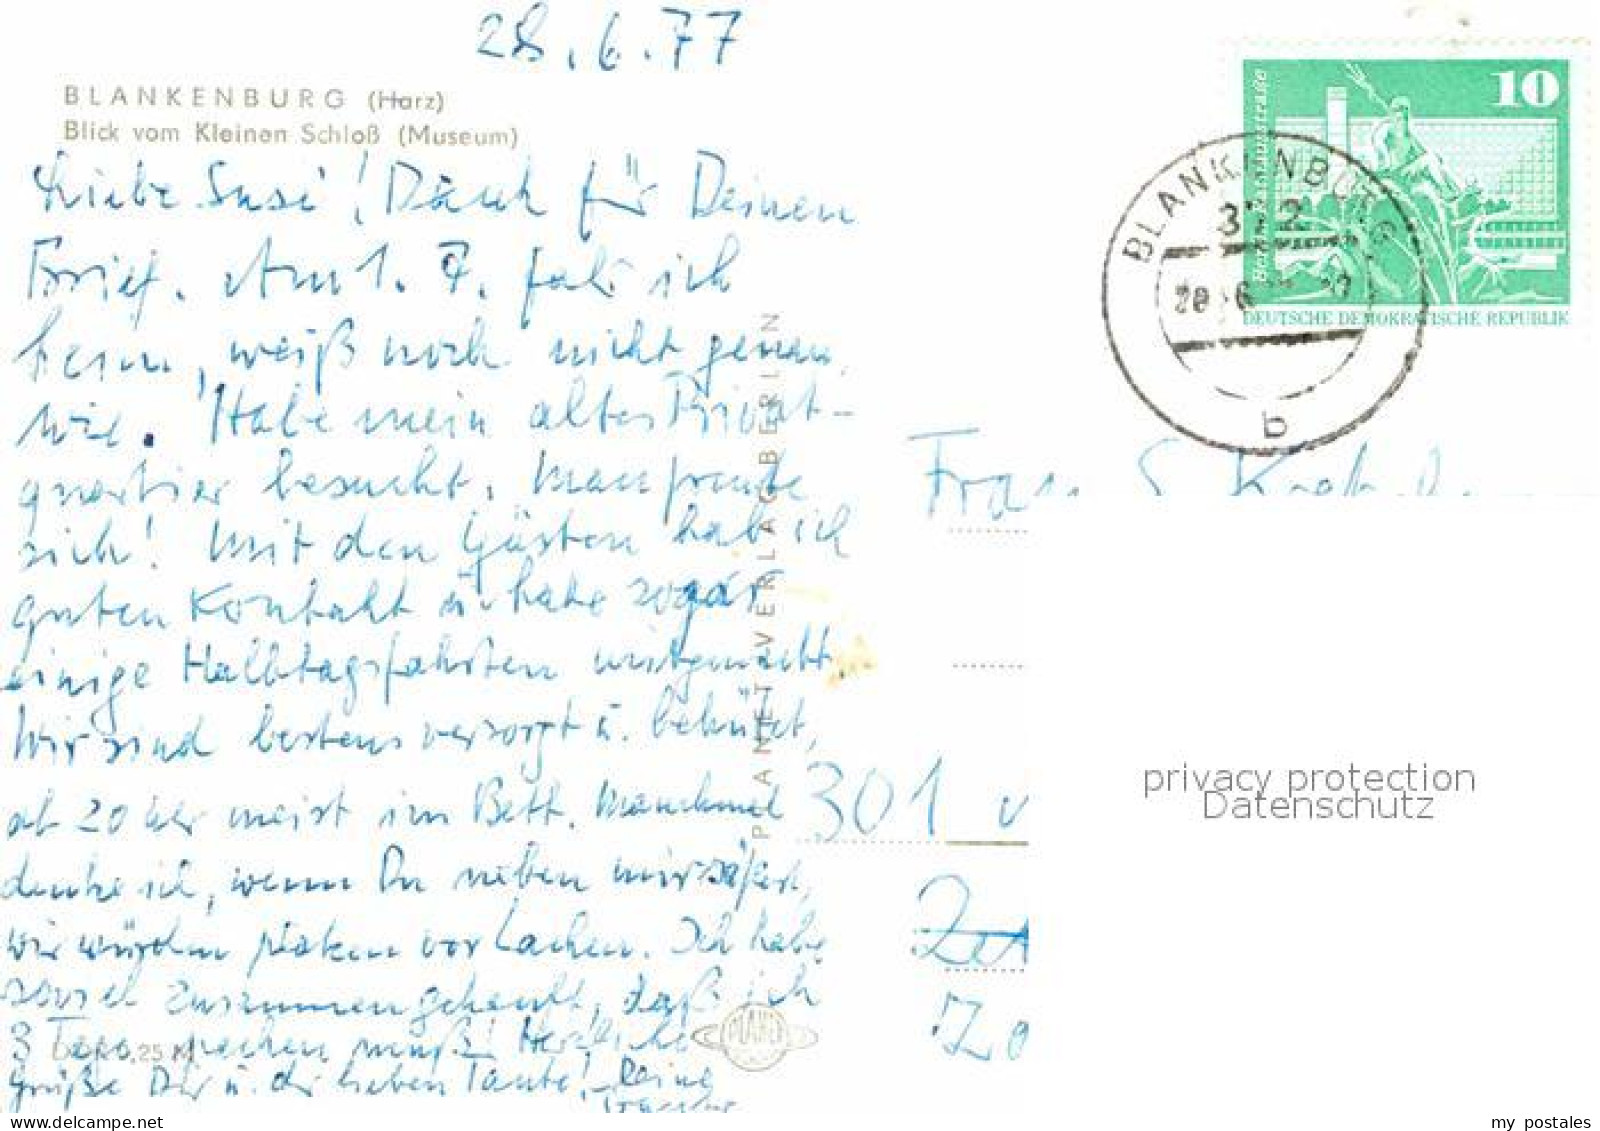 28.6.77
BLANKENBURG (Harz)
Blick vom Kleinen Schloß (Museum)
Liebe Susi! Dank für Deinen
Brief. Am 1. 7. fahr ich
heim, weiß noch nicht genau,
wie. Habe mein altes Privat-
quartier besucht. Man freute
sich! Mit den Gästen hab ich
guten Kontakt u. habe sogar
einige Halbtagsfahrten mitgemacht.
Wir sind bestens versorgt u. behütet,
ab 20 Uhr meist im Bett. Manchmal
denke ich, wenn Du neben mir säßest,
wir würden platzen vor Lachen. Ich habe
soviel zusammengekauft, daß ich
3 Tage packen muß! Herzliche
Grüße Dir u. der lieben Tante! Deine
PLANET-VERLAG BERLIN
PLANET
10
DEUTSCHE DEMOKRATISCHE REPUBLIK
BLANKENBURG
b
Frau S.
301
privacy protection
Datenschutz
my postales